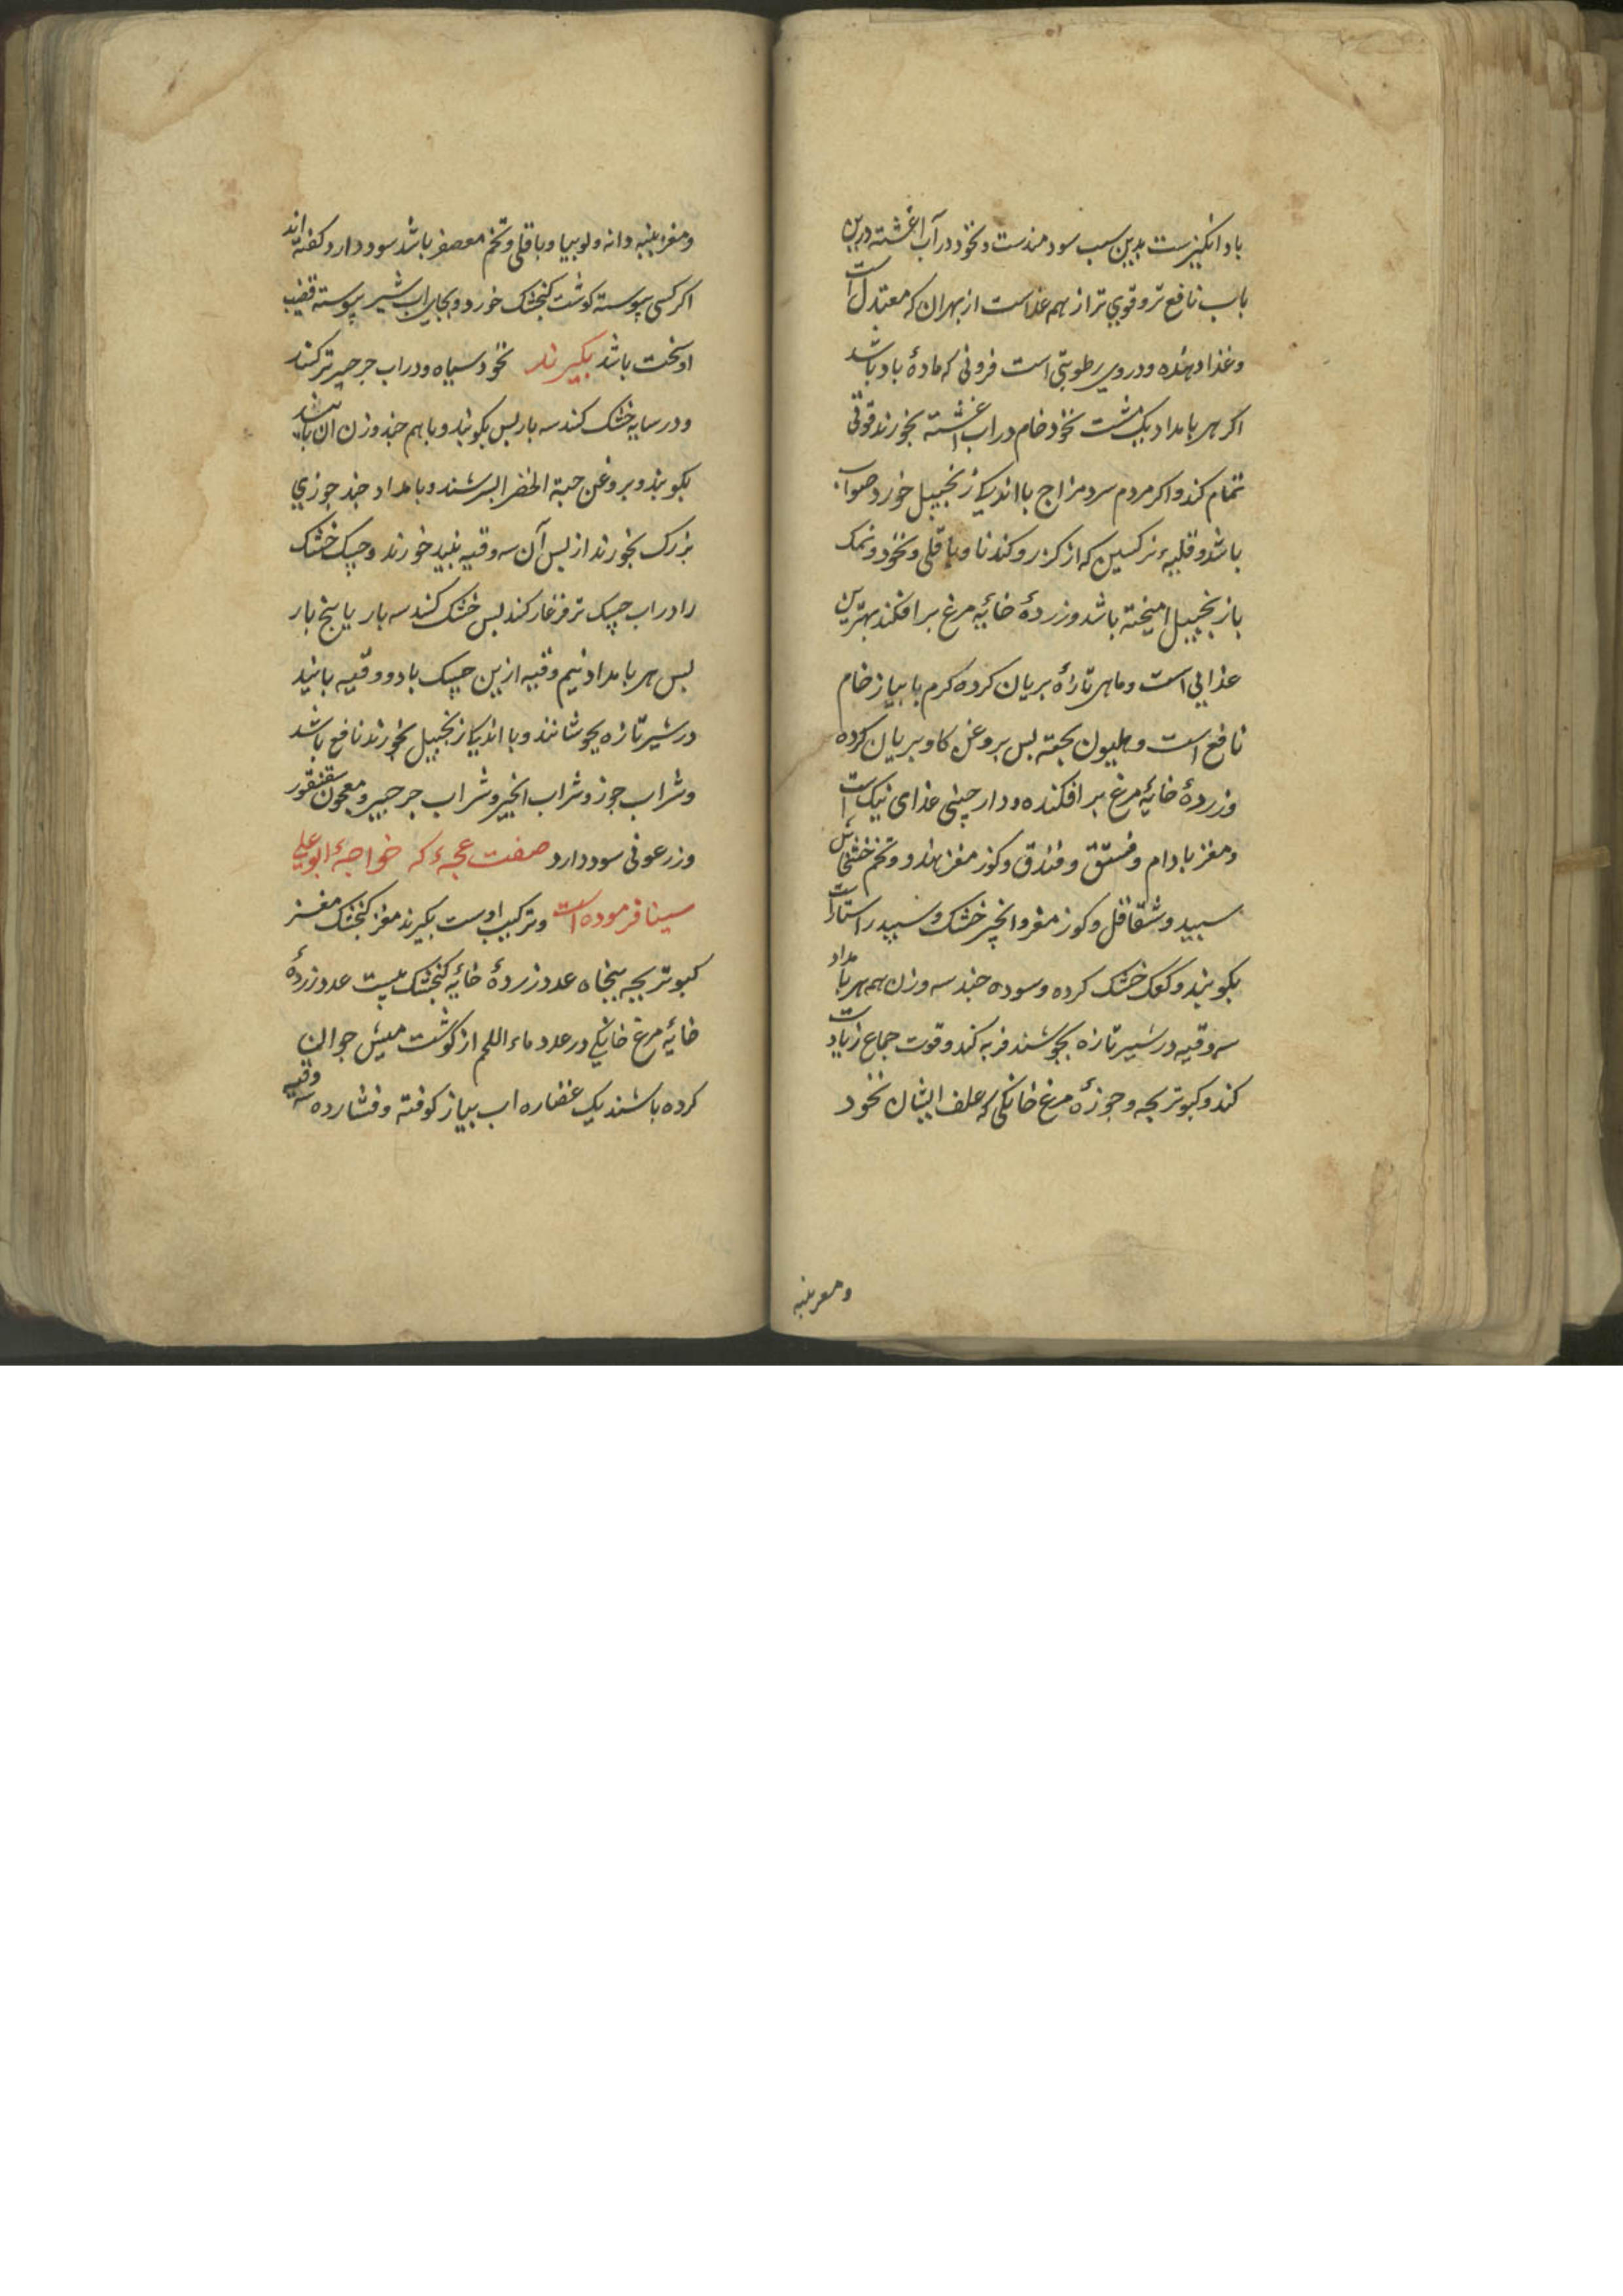 باد انکیزست بدین سبب سود مندست و نخود در آب اغشته درین
باب نافع تر و قوی تر از همه غذاست از بهر ان که معتدل است
و غذا دهنده و در وی رطوبتی است فزونی که مادهٔ باد باشد
اکر هر بامداد یک مشت نخود خام در اب اغشته بخورند قوتی
تمام کند و اکر مردم سرد مزاج با اندکی زنجبیل خورد صواب
باشد و قلیهٔ نرکسین که از کزر و کندنا و باقلی و نخود و نمک
باز نجبیل امیخته باشد و زردهٔ خایهٔ مرغ بر افکند بهترین
غذایی است و ماهی تازه بریان کرده کرم با بیاز خام
نافع است و هلیون بخته بس بروغن کاو بریان کرده
و زردهٔ خایهٔ مرغ بر افکنده و دار چینی غذای نیک است
و مغز بادام و فستق و فندق و کوز مغز هندو و تخم خشخاش
سبید و شقاقل و کوز مغز و انجیر خشک و سبید راستا راست
بکوبند و کعک خشک کرده و سوده چند سه وزن همه هر بامداد
سه وقیه در شیر تازه بجوشند فربه کند و قوت جماع زیادت
کند و کبوتر بچه و جوزهٔ مرغ خانکی که علف ایشان نخود
و مغز بنبه
و مغز بنبه دانه و لوبیا و باقلی و تخم معصفر باشد سود دارد کفته اند
اکر کسی بیوسته کوشت کنجشک خورد و بجای اب شیر بیوسته قضیب
او سخت باشد بکیرند نخود سیاه و در اب جرجیر تر کنند
و در سایه خشک کنند سه بار بس بکوبند و با هم چند وزن ان باشد
بکوبند و بروغن حبة الخضرا بسرشند و بامداد چند جوزی
بزرک بخورند از بس آن سه وقیه نبید خورند و حسک خشک
را در اب حسک تر فرغار کنند بس خشک کنند سه بار یا بنج بار
بس هر بامداد نیم وقیه ازین حسک با دو وقیه بانید
در شیر تازه بجوشانند و با اندکی زنجبیل بخورند نافع باشد
و شراب جوز و شراب انجیر و شراب جرجیر و معجون سقنقور
و زرعونی سود دارد صفت عجهٔ که خواجهٔ ابو علی
سینا فرموده است و ترکیب اوست بکیرند مغز کنجشک مغز
کبوتر بچه بنجاه عدد زردهٔ خایهٔ کنجشک بیست عدد زردهٔ
خایهٔ مرغ خانکی در عدد ماء اللحم از کوشت میش جوان
کرده باشند یک غضاره اب بیاز کوفته و فشارده سه وقیه